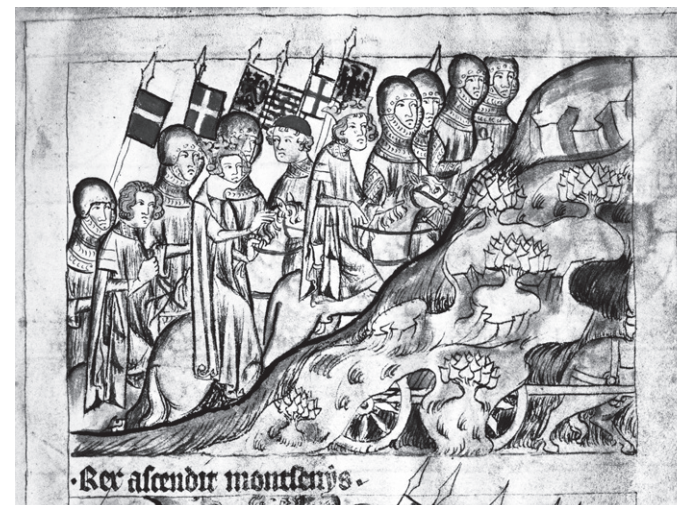 ·Rex ascendit montsenys·